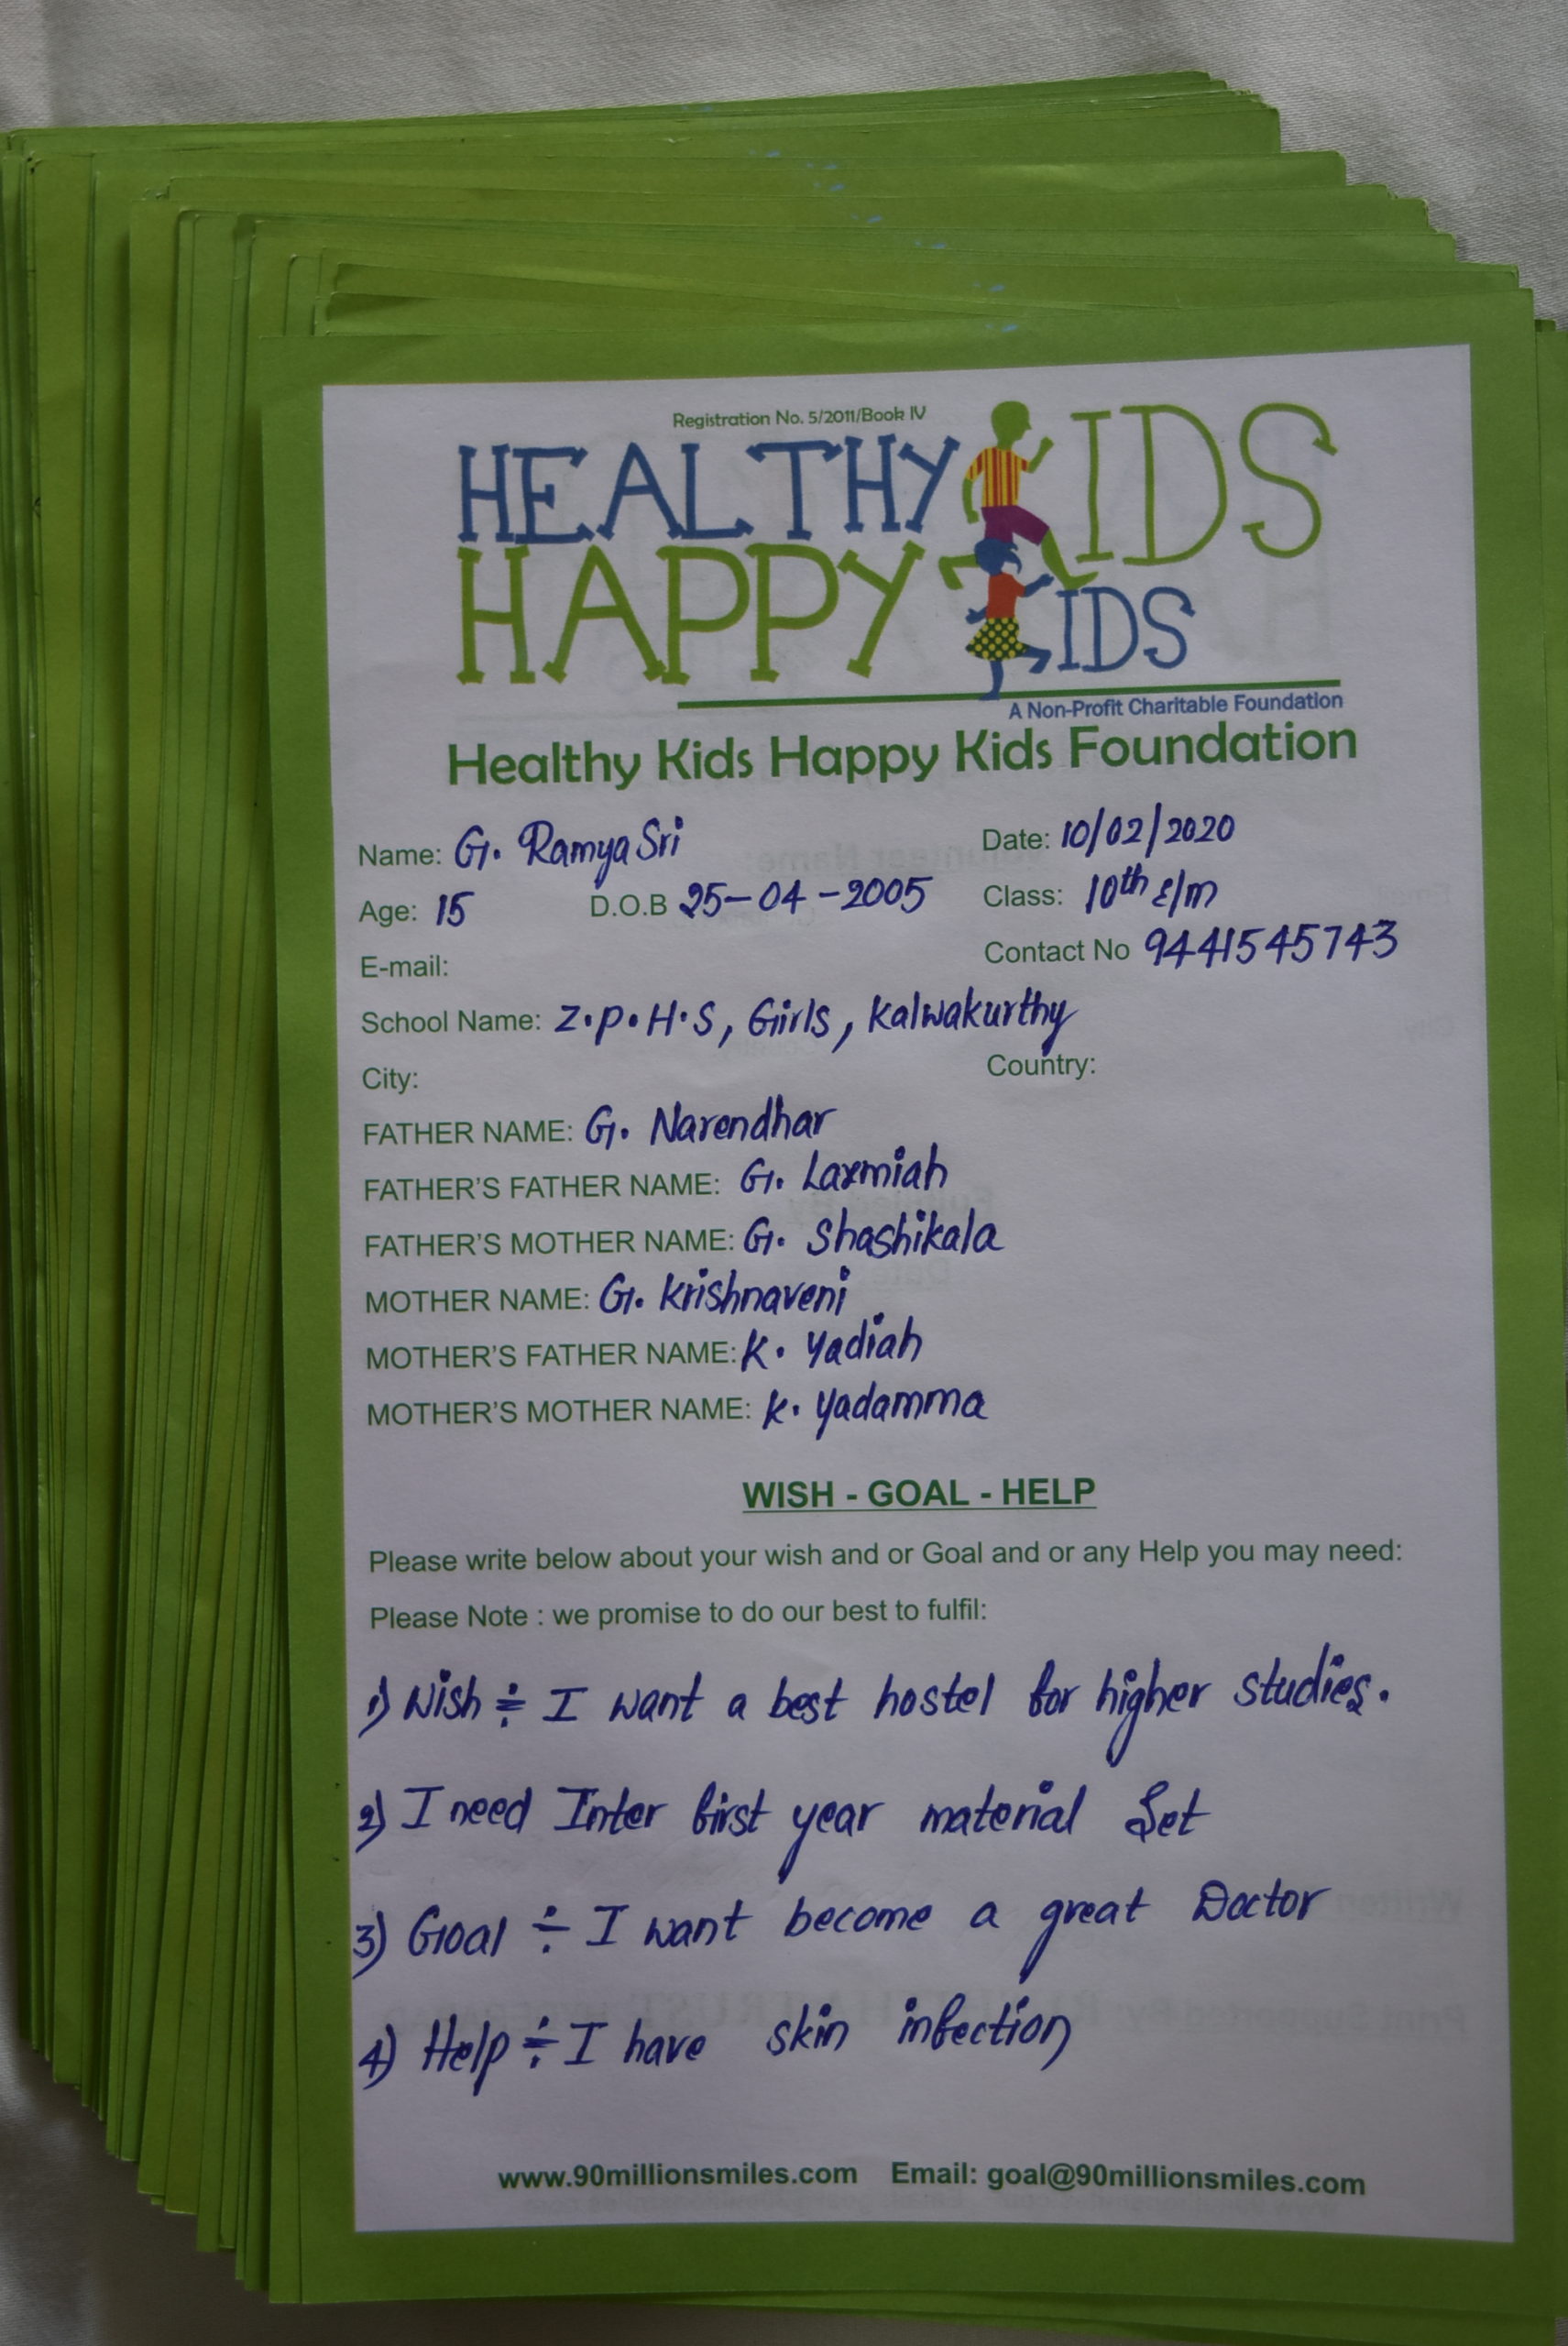 Registration No. 5/2011/Book IV
HEALTHY KIDS
HAPPY KIDS
A Non-Profit Charitable Foundation
Healthy Kids Happy Kids Foundation
Name: G. Ramya Sri Date: 10/02/2020
Age: 15 D.O.B 25-04-2005 Class: 10th E/m
E-mail: Contact No 9441545743
School Name: Z.P.H.S, Girls, Kalwakurthy
City: Country:
FATHER NAME: G. Narendhar
FATHER'S FATHER NAME: G. Laxmiah
FATHER'S MOTHER NAME: G. Shashikala
MOTHER NAME: G. Krishnaveni
MOTHER'S FATHER NAME: K. Yadiah
MOTHER'S MOTHER NAME: K. Yadamma
WISH - GOAL - HELP
Please write below about your wish and or Goal and or any Help you may need:
Please Note : we promise to do our best to fulfil:
1) Wish ÷ I want a best hostel for higher studies.
2) I need Inter first year material Set
3) Goal ÷ I want become a great Doctor
4) Help ÷ I have skin infection
www.90millionsmiles.com Email: goal@90millionsmiles.com